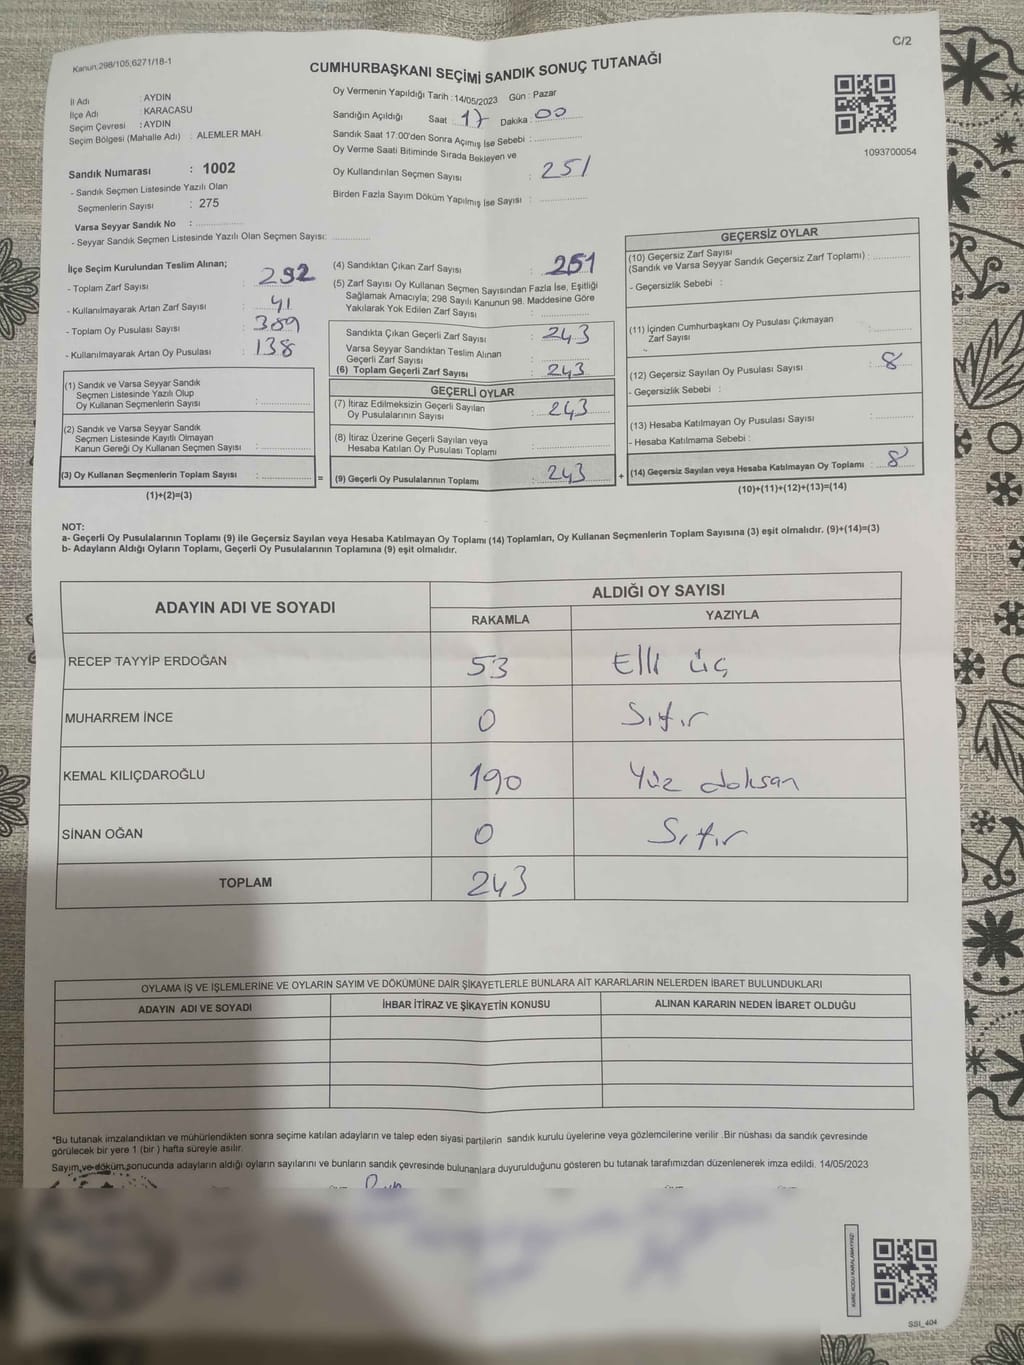 C/2
Kanun,298/105,6271/18-1
CUMHURBAŞKANI SEÇİMİ SANDIK SONUÇ TUTANAĞI
İl Adı : AYDIN
İlçe Adı : KARACASU
Seçim Çevresi : AYDIN
Seçim Bölgesi (Mahalle Adı) : ALEMLER MAH.
Sandık Numarası : 1002
- Sandık Seçmen Listesinde Yazılı Olan
Seçmenlerin Sayısı : 275
Varsa Seyyar Sandık No :
- Seyyar Sandık Seçmen Listesinde Yazılı Olan Seçmen Sayısı:
Oy Vermenin Yapıldığı Tarih : 14/05/2023 Gün : Pazar
Sandığın Açıldığı Saat : 17 Dakika : 00
Sandık Saat 17:00'den Sonra Açımış İse Sebebi :
Oy Verme Saati Bitiminde Sırada Bekleyen ve
Oy Kullandırılan Seçmen Sayısı : 251
Birden Fazla Sayım Döküm Yapılmış İse Sayısı :
1093700054
İlçe Seçim Kurulundan Teslim Alınan;
- Toplam Zarf Sayısı : 292
- Kullanılmayarak Artan Zarf Sayısı : 41
- Toplam Oy Pusulası Sayısı : 389
- Kullanılmayarak Artan Oy Pusulası : 138
(1) Sandık ve Varsa Seyyar Sandık
Seçmen Listesinde Yazılı Olup
Oy Kullanan Seçmenlerin Sayısı :
(2) Sandık ve Varsa Seyyar Sandık
Seçmen Listesinde Kayıtlı Olmayan
Kanun Gereği Oy Kullanan Seçmen Sayısı :
(3) Oy Kullanan Seçmenlerin Toplam Sayısı : =
(1)+(2)=(3)
(4) Sandıktan Çıkan Zarf Sayısı : 251
(5) Zarf Sayısı Oy Kullanan Seçmen Sayısından Fazla İse, Eşitliği
Sağlamak Amacıyla; 298 Sayılı Kanunun 98. Maddesine Göre
Yakılarak Yok Edilen Zarf Sayısı :
Sandıkta Çıkan Geçerli Zarf Sayısı : 243
Varsa Seyyar Sandıktan Teslim Alınan
Geçerli Zarf Sayısı :
(6) Toplam Geçerli Zarf Sayısı : 243
GEÇERLİ OYLAR
(7) İtiraz Edilmeksizin Geçerli Sayılan
Oy Pusulalarının Sayısı : 243
(8) İtiraz Üzerine Geçerli Sayılan veya
Hesaba Katılan Oy Pusulası Toplamı :
(9) Geçerli Oy Pusulalarının Toplamı : 243 +
GEÇERSİZ OYLAR
(10) Geçersiz Zarf Sayısı
(Sandık ve Varsa Seyyar Sandık Geçersiz Zarf Toplamı) :
- Geçersizlik Sebebi :
(11) İçinden Cumhurbaşkanı Oy Pusulası Çıkmayan
Zarf Sayısı :
(12) Geçersiz Sayılan Oy Pusulası Sayısı : 8
- Geçersizlik Sebebi :
(13) Hesaba Katılmayan Oy Pusulası Sayısı :
- Hesaba Katılmama Sebebi :
(14) Geçersiz Sayılan veya Hesaba Katılmayan Oy Toplamı : 8
(10)+(11)+(12)+(13)=(14)
NOT:
a- Geçerli Oy Pusulalarının Toplamı (9) ile Geçersiz Sayılan veya Hesaba Katılmayan Oy Toplamı (14) Toplamları, Oy Kullanan Seçmenlerin Toplam Sayısına (3) eşit olmalıdır. (9)+(14)=(3)
b- Adayların Aldığı Oyların Toplamı, Geçerli Oy Pusulalarının Toplamına (9) eşit olmalıdır.
ADAYIN ADI VE SOYADI
ALDIĞI OY SAYISI
RAKAMLA YAZIYLA
RECEP TAYYİP ERDOĞAN 53 Elli üç
MUHARREM İNCE 0 Sıfır
KEMAL KILIÇDAROĞLU 190 Yüz doksan
SİNAN OĞAN 0 Sıfır
TOPLAM 243
OYLAMA İŞ VE İŞLEMLERİNE VE OYLARIN SAYIM VE DÖKÜMÜNE DAİR ŞİKAYETLERLE BUNLARA AİT KARARLARIN NELERDEN İBARET BULUNDUKLARI
ADAYIN ADI VE SOYADI İHBAR İTİRAZ VE ŞİKAYETİN KONUSU ALINAN KARARIN NEDEN İBARET OLDUĞU
*Bu tutanak imzalandıktan ve mühürlendikten sonra seçime katılan adayların ve talep eden siyasi partilerin sandık kurulu üyelerine veya gözlemcilerine verilir .Bir nüshası da sandık çevresinde
görülecek bir yere 1 (bir ) hafta süreyle asılır.
Sayım ve döküm sonucunda adayların aldığı oyların sayılarını ve bunların sandık çevresinde bulunanlara duyurulduğunu gösteren bu tutanak tarafımızdan düzenlenerek imza edildi. 14/05/2023
KARE KODU KARALAMAYINIZ!
SSI_404